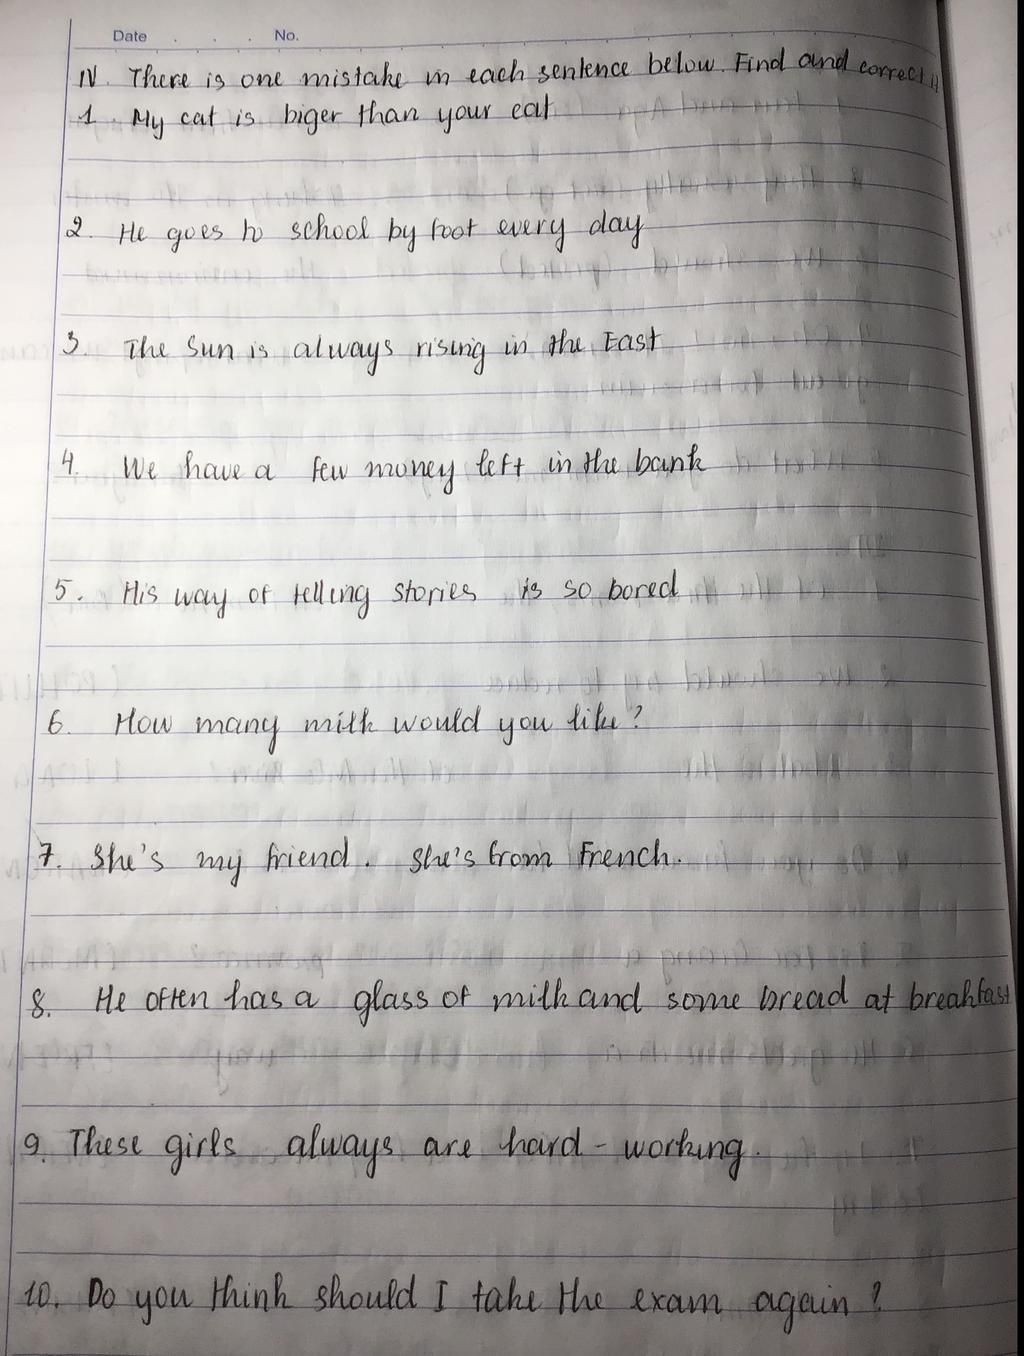 Date . . . No.
IV. There is one mistake in each sentence below. Find and correct it
1. My cat is biger than your cat
2. He goes to school by foot every day
3. The Sun is always rising in the East
4. We have a few money left in the bank
5. His way of telling stories is so bored
6. How many milk would you like?
7. She's my friend. She's from French.
8. He often has a glass of milk and some bread at breakfast
9. These girls always are hard-working.
10. Do you think should I take the exam again?